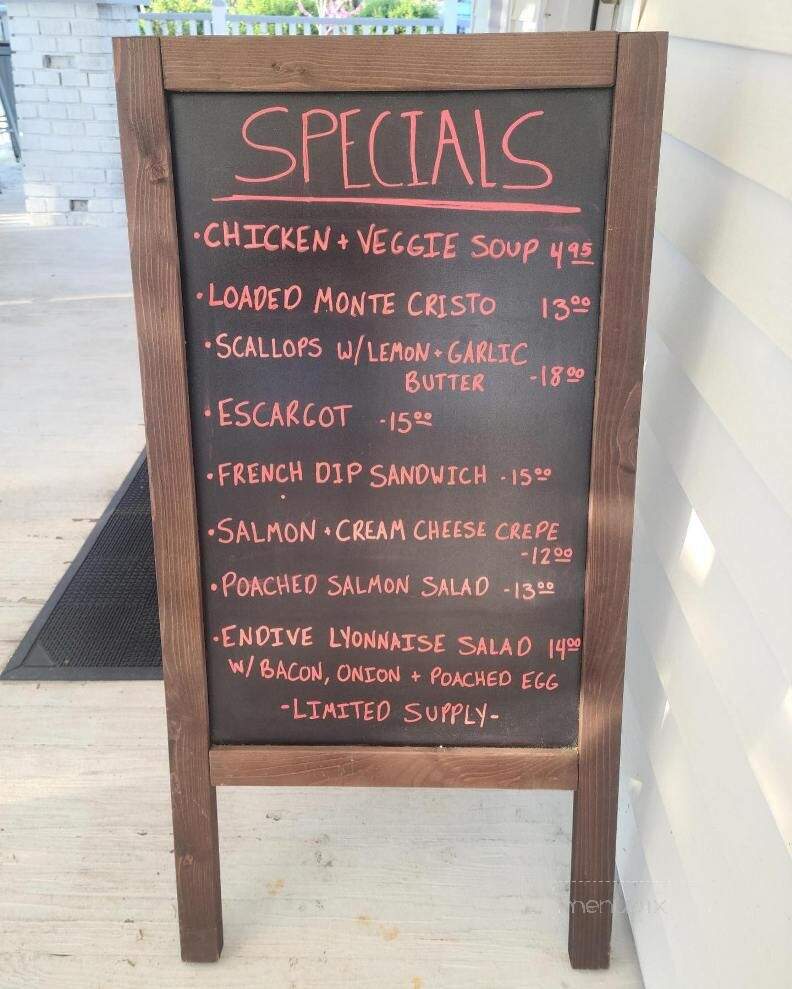 SPECIALS
•CHICKEN + VEGGIE SOUP 4.95
•LOADED MONTE CRISTO 13.00
•SCALLOPS W/LEMON + GARLIC
BUTTER -18.00
•ESCARGOT -15.00
•FRENCH DIP SANDWICH -15.00
•SALMON + CREAM CHEESE CREPE
-12.00
•POACHED SALMON SALAD -13.00
•ENDIVE LYONNAISE SALAD 14.00
W/BACON, ONION + POACHED EGG
-LIMITED SUPPLY-
menupix